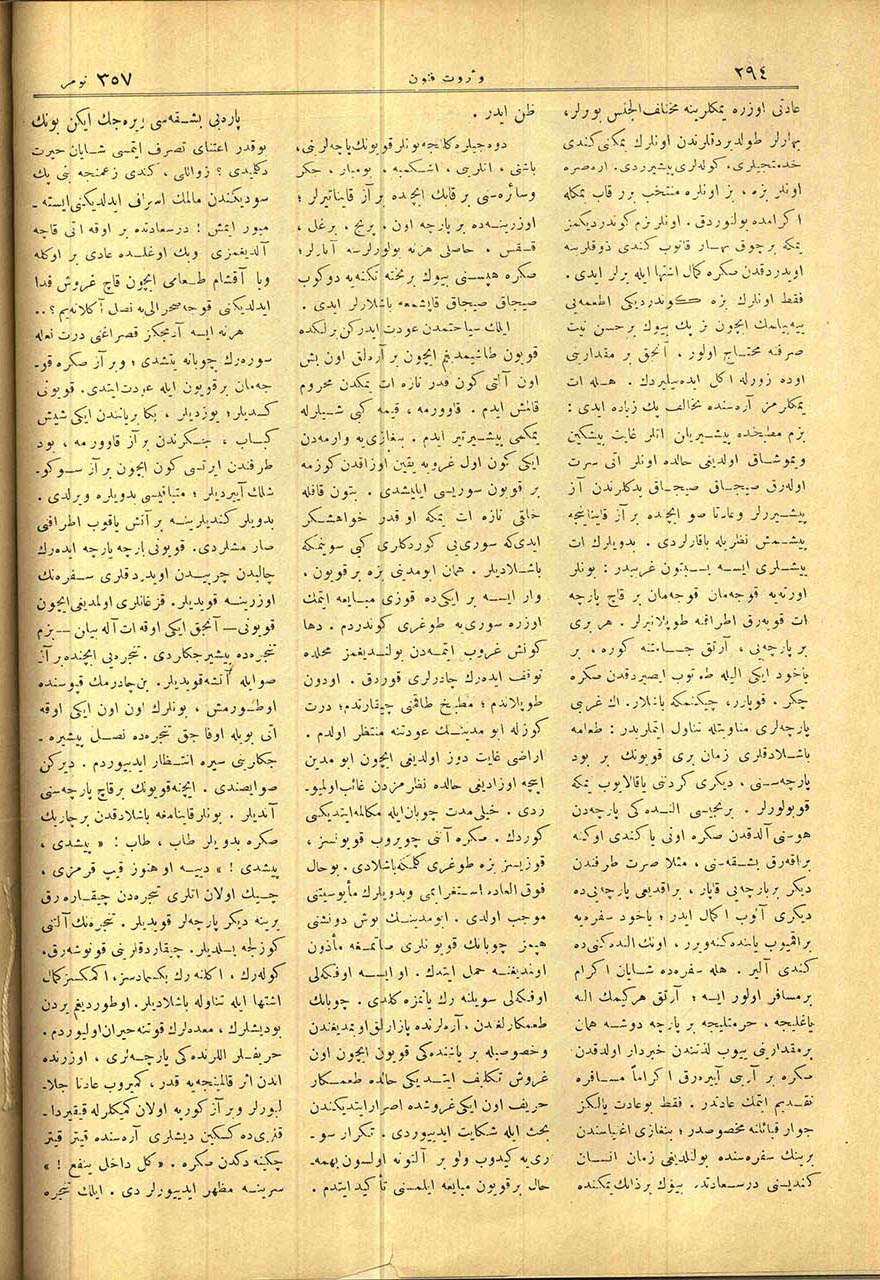 ٢٩٤
ثروت فنون
نومرو ٣٥٧
عادتی اوزره یمکلرینه مختلف الجنس بوبرلر،
بهارلر طولدیردقلرندن اونلرك یمکنی کندی
خدمتجیلری، کوله‌لری پیشیرردی. اره‌صره
اونلر بزه ، بز اونلره منتخب برر قاب یمکله
اکرامده بولنوردق . اونلر بزم کوندردیکمز
یمکه برچوق بهار قاتوب کندی ذوقلرینه
اویدردقدن صکره کمال اشتها ایله یرلر ایدی .
فقط اونلرك بزه کوندردیکی اطعمه‌یی
ییه‌بیلمك ایچون بز پك بیوك بر حسن نیت
صرفنه محتاج اولور ، آنجق بر مقدارینی
اوده زورله اکل ایده‌بیلیردك . هله ات
یمکلرمز آره‌سنده تخالف پك زیاده ایدی :
بزم مطبخده پیشیریلن اتلر غایت پیشکین
ویموشاق اولدیغی حالده اونلر اتی سرت
اوله‌رق صیجاق صیجاق یدکلرندن آز
پیشیررلر وعادتا صو ایچنده بر آز قاینایجه
پیشمش نظریله باقارلردی . بدویلرك ات
ییشلری ایسه بسبتون غریبدر : بونلر
اورته‌یه قوجه‌مان قوجه‌مان بر قاچ پارچه
ات قویه‌رق اطرافنه طوپلانیرلر . هر بری
بر پارچه‌یی ، آرتق جسامتنه کوره ، بر
یاخود ایکی الیله طوتوب ایصیردقدن صکره
چکر . قوپارر، چیکنمکه باشلار. اك غریبی
پارچه‌لری مناوبتله تناول ایتملریدر : طعامه
باشلادقلری زمان بری قویونك بر بود
پارچه‌سنی ، دیکری کردنی یاقالایوب یمکه
قویولورلر . برنجیسی النده‌کی پارچه‌دن
هوسنی آلدقدن صکره اونی یا کندی اوکنه
براقه‌رق بشقه‌سنی ، مثلا صرت طرفندن
دیکر بر پارچه‌یی قاپار ، براقدیغی پارچه‌یی ده
دیکری آلوب اکمال ایدر؛ یاخود سفره‌یه
براقیوب یاننده‌کنه ویرر ، اونك النده‌کنی ده
کندی آلیر . هله سفره‌ده شایان اکرام
بر مسافر اولور ایسه ؛ آرتق هرکیمك النه
یاغلیجه ، حرمتلیجه بر پارچه دوشسه همان
بر مقدارینی ییوب لذتندن خبردار اولدقدن
صکره بر آریی آییره‌رق اکراماً مسافره
تقدیم ایتمك عادتدر . فقط بو عادت یالکز
جوار قبائلنه مخصوصدر ؛ بنغازی اغنیاسندن
برینك سفره‌سنده بولندیغی زمان انسان
کندیسنی درسعادتده بیوك بر ذاتك یمکنده
ظن ایدر .
دوه‌جیلره کلنجه بونلر قویونك پاچه‌لرینی،
باشنی ، اتلرینی ، اشکمبه ، بومبار ، جکر
وسائره‌سنی بر قابك ایچنده بر آز قایناتیرلر ؛
اوزرینه ده بر پارچه اون ، پرنج ، برغل ،
قسقس ، حاصلی هر نه بولورلرسه آتارلر؛
صکره هپسنی بیوك بر تخته تکنه‌یه دوکوب
صیجاق صیجاق قاپیشمغه باشلارلر ایدی .
ایلك سیاحتمدن عودت ایدرکن برلکده
قویون طاشیمدیغم ایچون بر آره‌لق اون بش
اون آلتی کون قدر تازه ات یمکدن محروم
قالمش ایدم . قاوورمه ، قیمه کبی شیلرله
یمکمی پیشیرتیر ایدم . بنغازی‌یه وارمه‌دن
ایکی کون اول غروبه یقین اوزاقدن کوزمه
بر قویون سوریسی ایلیشدی . بتون قافله
خلقی تازه ات یمکه او قدر خواهشکر
ایدی‌که سوری‌یی کوردکلری کبی سوینمکه
باشلادیلر . همان ابومدینی بزه بر قویون ،
وار ایسه بر ایکی ده قوزی مبایعه ایتمك
اوزره سوری‌یه طوغری کوندردم . دها
کونش غروب ایتمه‌دن بولندیغمز محلده
توقف ایده‌رك چادرلری قوردق . اودون
طوپلاندم ؛ مطبخ طاقمنی چیقارتدم؛ درت
کوزله ابو مدینك عودتنه منتظر اولدم .
اراضی غایت دوز اولدیغی ایچون ابو مدین
اپیجه اوزادیغی حالده نظرمزدن غائب اولمیو-
ردی . خیلی مدت چوبان ایله مکالمه ایتدیکنی
کوردك . صکره آتنی چویروب قویونسز ،
قوزیسز بزه طوغری کلمکه باشلادی . بوحال
فوق العاده استغرابمی وبدویلرك مأیوسیتنی
موجب اولدی . ابومدینك بوش دونشنی
هپمز چوبانك قویونلری صاتمغه مأذون
اولمدیغنه حمل ایتدك . او ایسه اوفکه‌لی
اوفکه‌لی سویلنه‌رك یانمزه کلدی . چوبانك
طمعکارلغندن ، آره‌لرنده پازارلق اویمدیغندن
وخصوصیله بر یاشنده‌کی قویون ایچون اون
غروش تکلیف ایتدیکی حالده طمعکار
حریف اون ایکی غروشده اصرار ایتدیکندن
بحث ایله شکایت ایدییوردی . تکرار سو-
ری‌یه کیدوب ولو بر آلتونه اولسون بهمه-
حال بر قویون مبایعه ایلمسنی تأکید ایتدم .
پاره‌یی بشقه‌سی ویره‌جك ایکن بونك
بوقدر اعتنای تصرف ایتمسی شایان حیرت
دکلمیدی ؟ زواللی ، کندی زعمنجه بنی پك
سودیکندن مالمك اسراف ایدلدیکنی ایسته-
میور ایمش ! درسعادتده بر اوقه اتی قاچه
آلدیغمزی وبك اوغلنده عادی بر اوکله
ویا آقشام طعامی ایچون قاچ غروش فدا
ایدلدیکنی قوجه صحرالی‌یه نصل آکلاته‌یم ؟ ..
هر نه ایسه آدمجکز قصراغنی درت نعله
سوره‌رك چوبانه یتشدی ؛ وبر آز صکره قو-
جه‌مان بر قویون ایله عودت ایتدی. قویونی
کسدیلر؛ یوزدیلر ، بکا بریانندن ایکی شیش
کباب ، جکرندن بر آز قاوورمه ، بود
طرفندن ایرتسی کون ایچون بر آز سوکو-
شلك آییردیلر ؛ متباقیسی بدویلره ویرلدی .
بدویلر کندیلرینه بر آتش یاقوب اطرافنی
صارمشلردی. قویونی پارچه پارچه ایده‌رك
چالیدن چرپیدن اویدردقلری سفره‌نك
اوزرینه قویدیلر. قزغانلری اولمدیغی ایچون
قویونی — آنجق ایکی اوقه ات آله بیلن — بزم
تنجره‌ده پیشیره‌جکلردی . تنجره‌یی ایچنده بر آز
صو ایله آتشه قویدیلر . بن چادرمك قپوسنده
اوطورمش ، بونلرك اون اون ایکی اوقه
اتی بویله اوفاجق تنجره‌ده نصل پیشیره-
جکلرینی سیره انتظار ایدییوردم . دیرکن
صو ایصندی . ایچنه قویونك بر قاچ پارچه‌سنی
آتدیلر . بونلر قاینامغه باشلادقدن بر چاریك
صکره بدویلر طاب ، طاب : « پیشدی ،
پیشدی ! » دییه او هنوز قیپ قرمزی ،
چیك اولان اتلری تنجره‌دن چیقاره‌رق
یرینه دیکر پارچه‌لر قویدیلر . تنجره‌نك آلتنی
کوزلجه بسلدیلر. چیقاردقلرینی قونوشه‌رق،
کوله‌رك ، اکلنه‌رك بکسمادسز، اکمکسز کمال
اشتها ایله تناوله باشلادیلر. اوطوردیغم یردن
بو دیشلرك ، معده‌لرك قوتنه حیران اولیوردم .
حریفلر اللرنده‌کی پارچه‌لری ، اوزرنده
اتدن اثر قالمینجه‌یه قدر ، کمیروب عادتا جلا-
لیورلر وبر آز کوریه اولان کمیکلرله قیقیردا-
قلری ده کسکین دیشلری آره‌سنده قیتر قیتر
چکینه دکدن صکره . « کل داخل ینفع ! »
سرینه مظهر ایدییورلر دی . ایلك تنجره